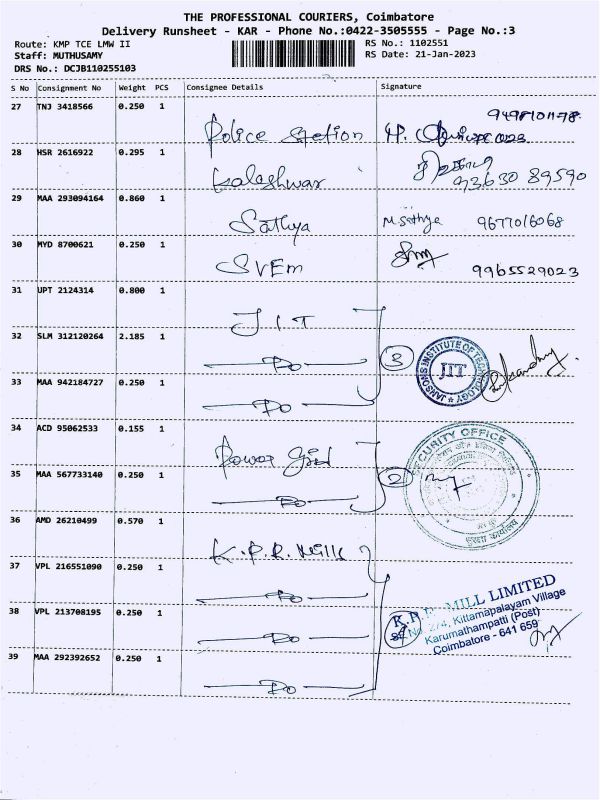 THE PROFESSIONAL COURIERS, Coimbatore
Delivery Runsheet - KAR - Phone No.:0422-3505555 - Page No.:3
Route: KMP TCE LMW II
RS No.: 1102551
Staff: MUTHUSAMY
RS Date: 21-Jan-2023
DRS No.: DCJB110255103
S No Consignment No Weight PCS Consignee Details Signature
27 TNJ 3418566 0.250 1
Police Station
28 HSR 2616922 0.295 1
Kaleshwar
93630 89590
29 MAA 293094164 0.860 1
Sathya M.Sathya 9677016068
30 MYD 8700621 0.250 1
SVEM 9965529023
31 UPT 2124314 0.800 1
JIT
32 SLM 312120264 2.185 1
Do
3
JANSONS INSTITUTE OF TECHNOLOGY
JIT
33 MAA 942184727 0.250 1
Do
34 ACD 95062533 0.155 1
Power Grid
SECURITY OFFICE
35 MAA 567733140 0.250 1
Do
2
36 AMD 26210499 0.570 1
K.P.R. Mills
37 VPL 216551090 0.250 1
Do
38 VPL 213708195 0.250 1
Do
K.P.R. MILL LIMITED
274, Kittampalayam Village
Karumathampatti (Post)
Coimbatore - 641 659
39 MAA 292392652 0.250 1
Do